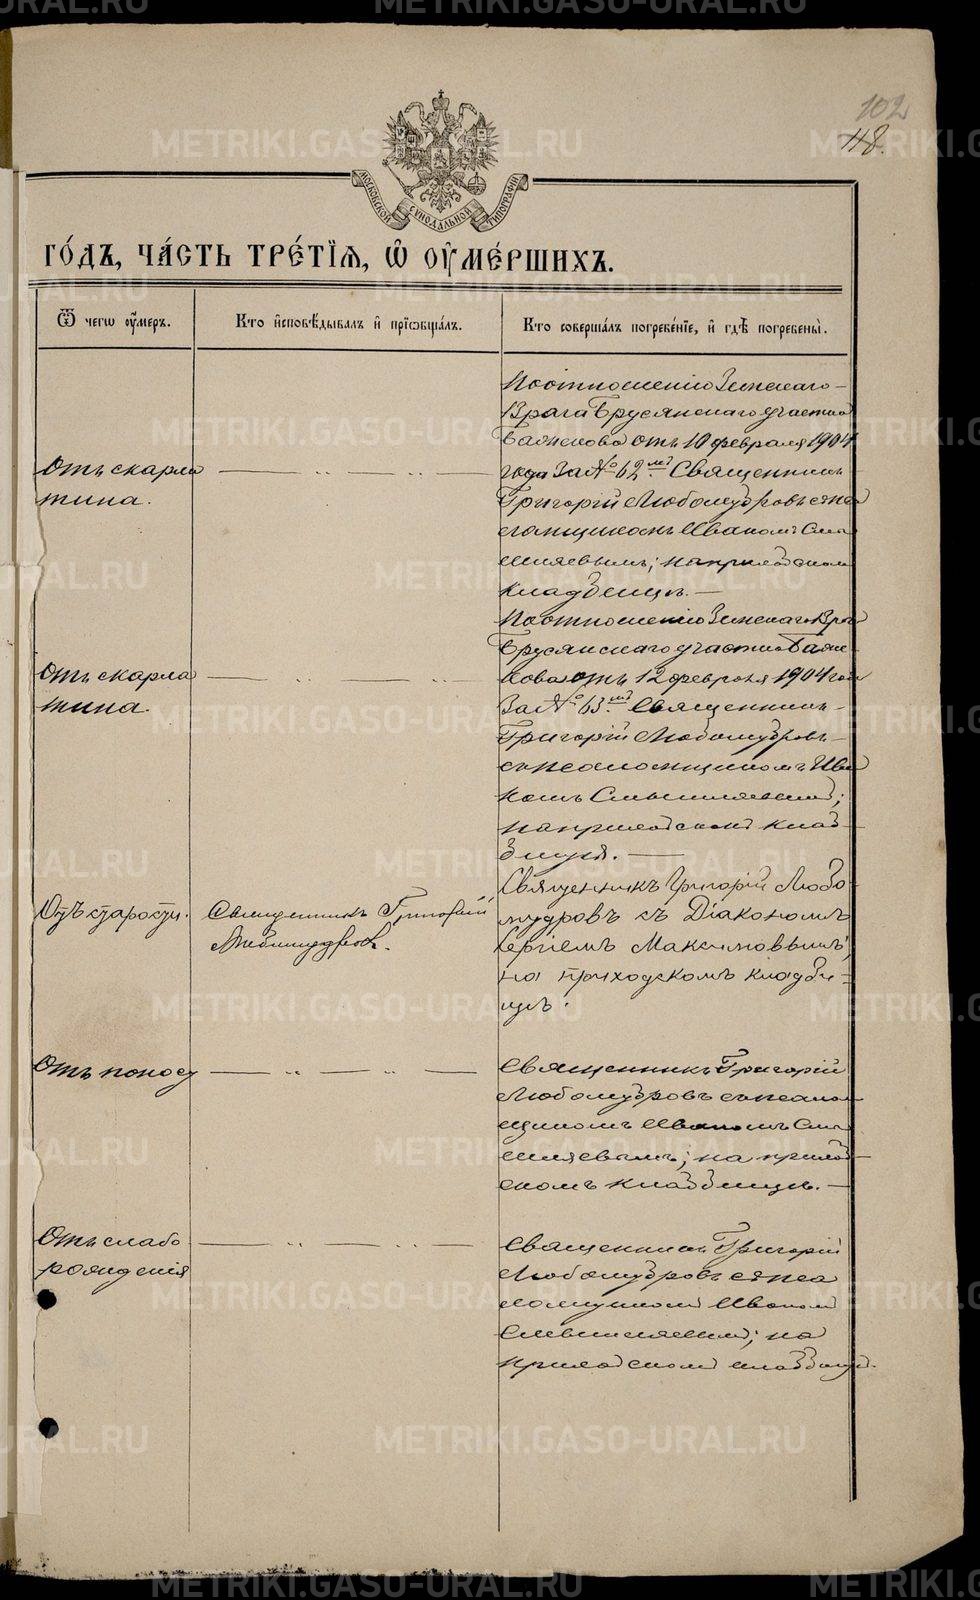 102
118.
МОСКОВСКОЙ СѴНОДАЛЬНОЙ ТИПОГРАФІИ
ГО́ДЪ, ЧА́СТЬ ТРЕ́ТІѦ, Ѽ ОУМЕ́РШИХЪ.
Ѿ чегѡ оу́меръ.
Кто и҆сповѣ́дывалъ и҆ прїѡбща́лъ.
Кто соверша́лъ погребе́нїе, и҆ гдѣ̀ погребены̀.
Отъ скарла
тина.
По отношенію Земскаго
Врача Брусянскаго участка
Баженова отъ 10 февраля 1904
года За № 62мъ Священникъ
Григорій Любомудровъ съ пса
ломщикомъ Иваномъ Смы
шляевымъ; на приходском
кладбищѣ. —
Отъ скарла
тина.
По отношенію Земскаго Врач
Брусянскаго участка Баже
нова отъ 12 февраля 1904 года
За № 63мъ Священникъ
Григорій Любомудровъ
съ псаломщикомъ Ива
номъ Смышляевым;
на приходском клад
бищѣ. —
Отъ старости.
Священникъ Григорій
Любомудровъ.
Священникъ Григорій Любо
мудровъ съ Діакономъ
Сергіемъ Максимовымъ,
на приходскомъ кладби-
щѣ.
Отъ поносу
Священникъ Григорій
Любомудровъ съ псалом
щикомъ Иваномъ Смы
шляевымъ; на приход
скомъ кладбищѣ. —
Отъ слабо
рожденія
Священникъ Григорій
Любомудровъ съ пса
ломщиком Иваном
Смышляевым; на
приходском кладбищѣ.
METRIKI.GASO-URAL.RU